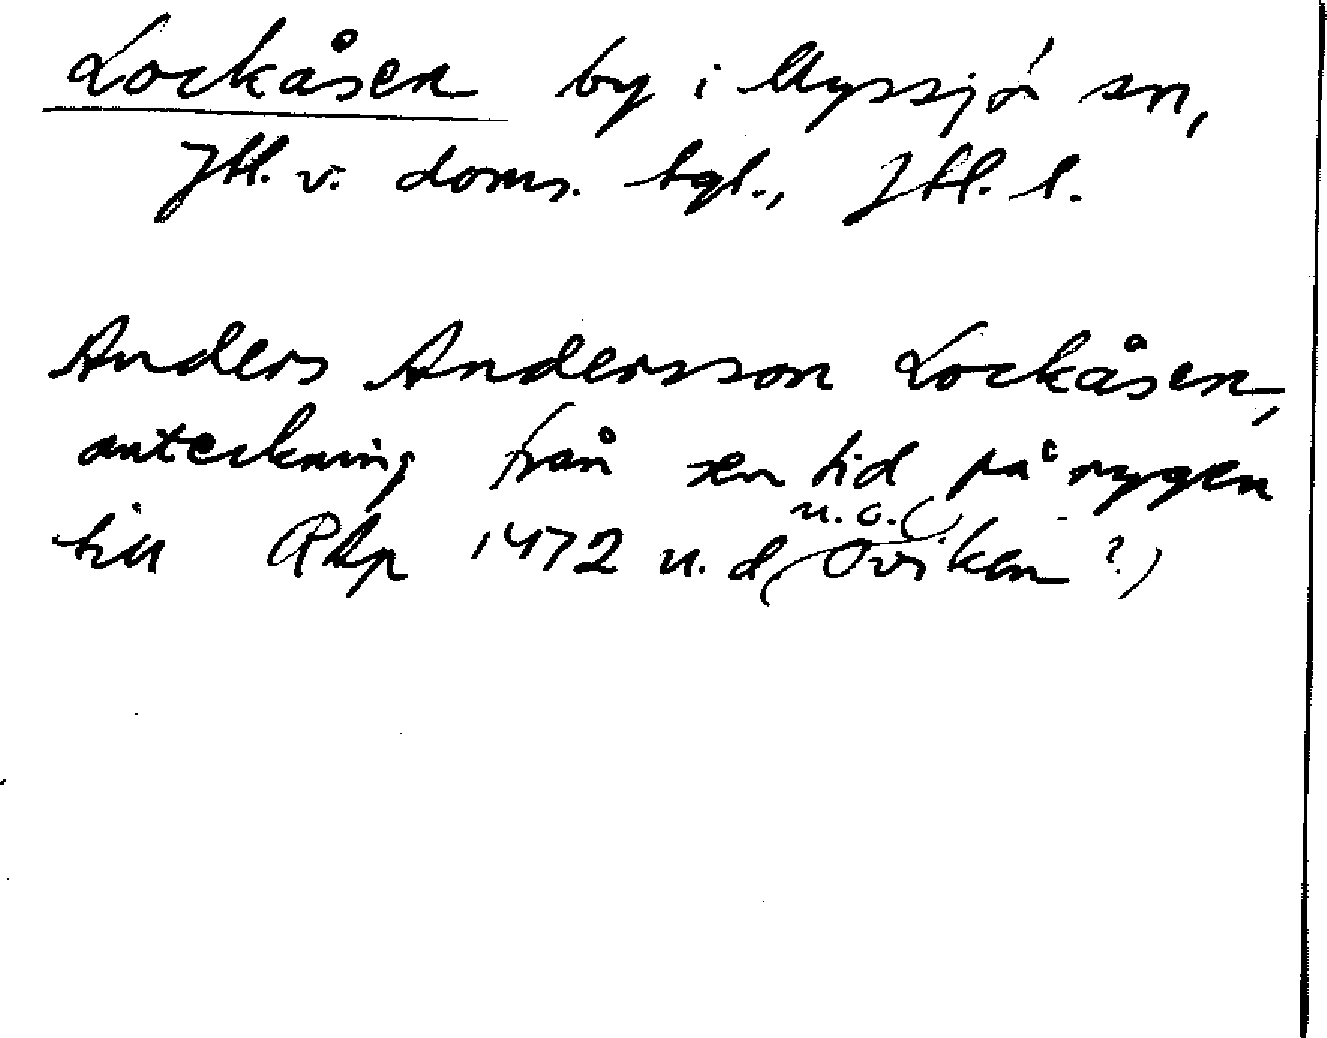 Lockåsen by i Myssjö sn,
Jtl. v. doms. tgl., Jtl. l.
Anders Andersson Lockåsen,
anteckning från sen tid på ryggen
till RAp 1472 u. d. (u. o. (Oviken?)